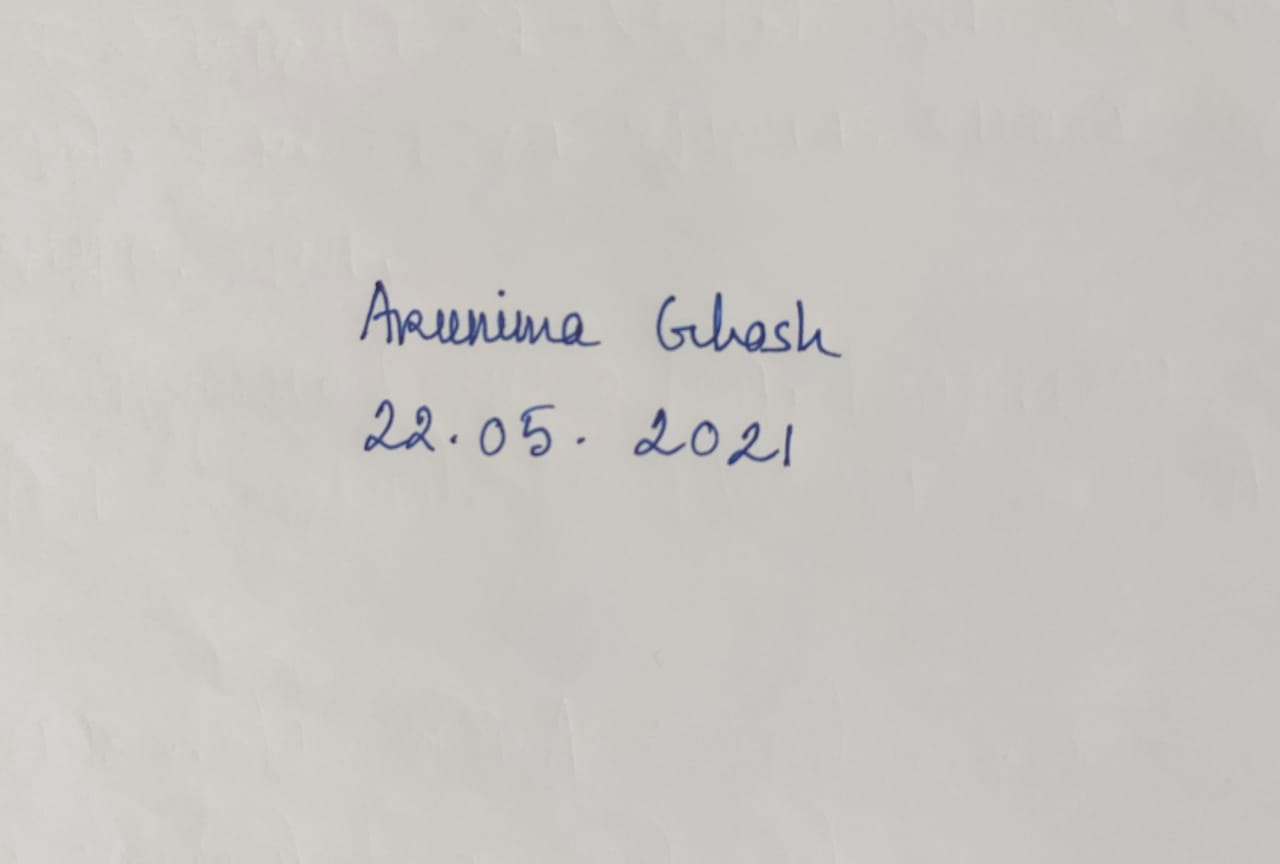 Arunima Ghosh
22.05.2021